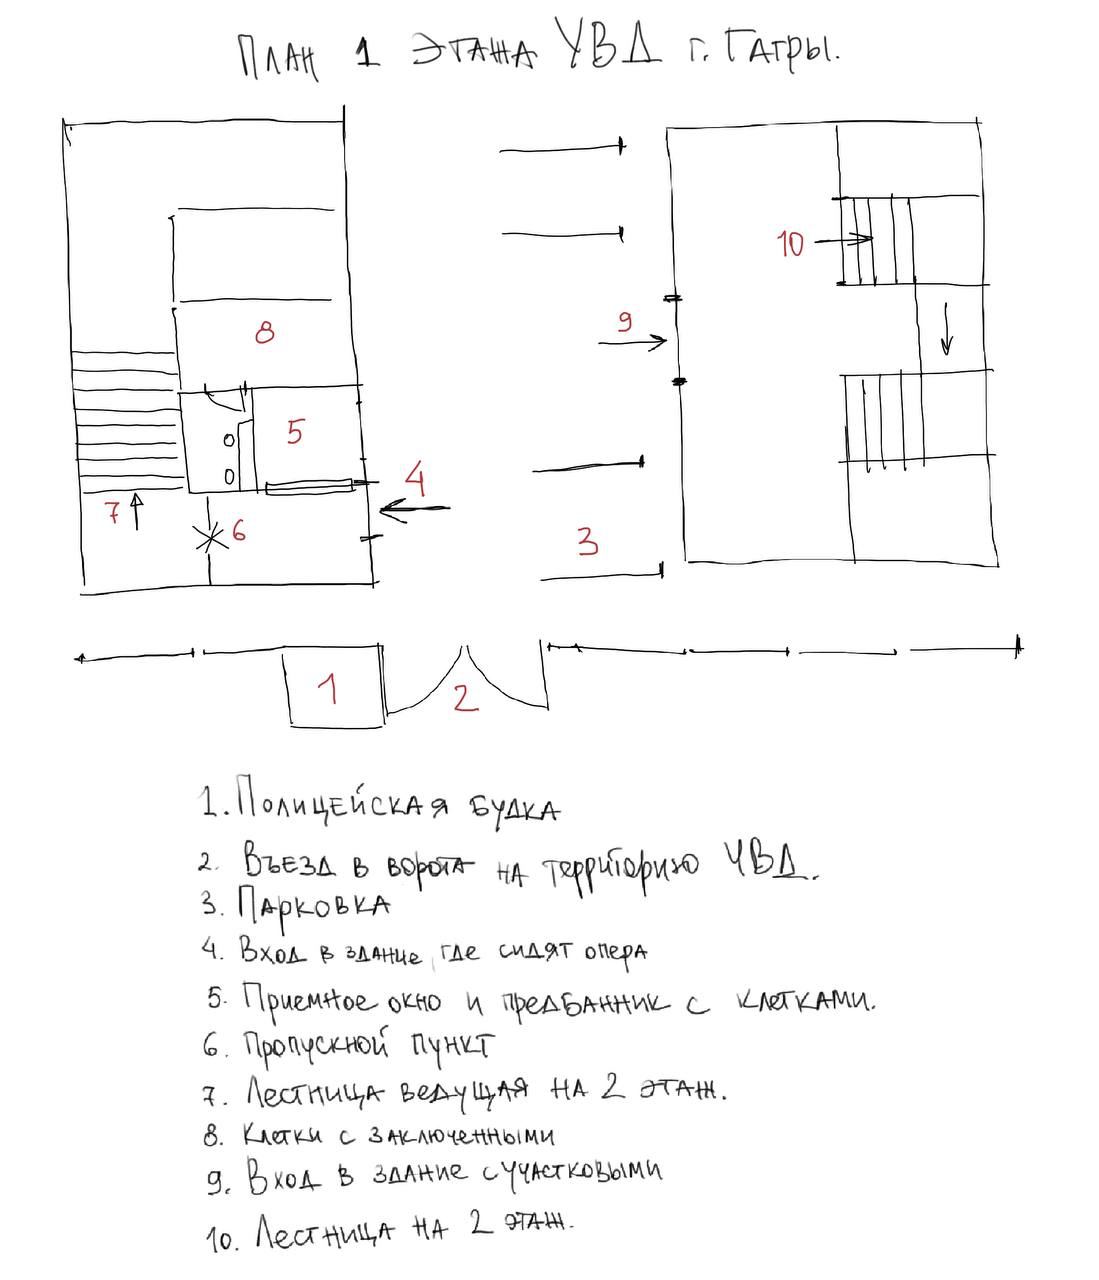 План 1 этажа УВД г. Гагры.
10
9
8
5
4
7
6
3
1
2
1. Полицейская будка
2. Въезд в ворота на территорию УВД.
3. Парковка
4. Вход в здание, где сидят опера
5. Приемное окно и предбанник с клетками.
6. Пропускной пункт
7. Лестница ведущая на 2 этаж.
8. Клетки с заключенными
9. Вход в здание с участковыми
10. Лестница на 2 этаж.